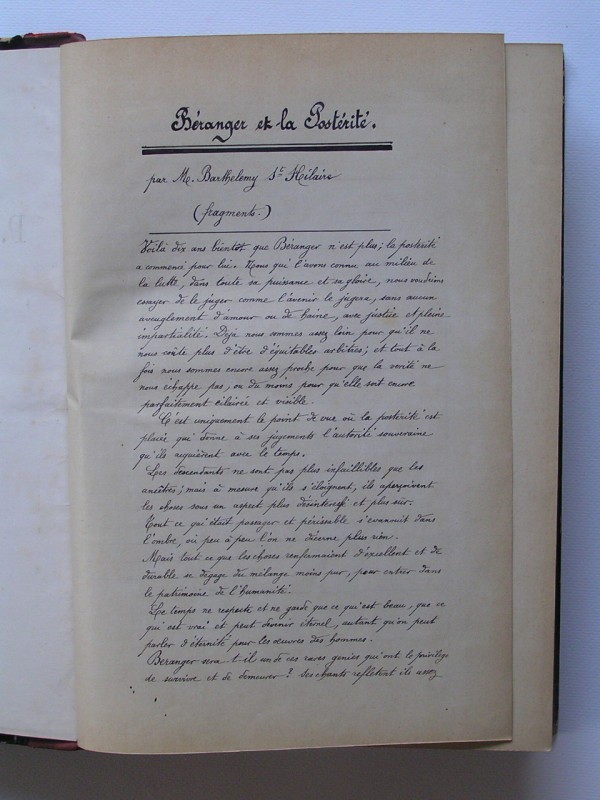 Béranger et la Postérité.
par M. Barthelemy St Hilaire
(fragments.)
Voilà dix ans bientôt que Béranger n'est plus; la postérité
a commencé pour lui. Nous qui l'avons connu au milieu de
la lutte, dans toute sa puissance et sa gloire, nous voudrions
essayer de le juger comme l'avenir le jugera, sans aucun
aveuglement d'amour ou de haine, avec justice et pleine
impartialité. Déjà nous sommes assez loin pour qu'il ne
nous coûte plus d'être d'équitables arbitres; et tout à la
fois nous sommes encore assez proche pour que la verité ne
nous échappe pas, ou du moins pour qu'elle soit encore
parfaitement eclairée et visible.
C'est uniquement le point de vue où la postérité est
placée qui donne à ses jugements l'autorité souveraine
qu'ils acquièrent avec le temps.
Les descendants ne sont pas plus infaillibles que les
ancêtres; mais à mesure qu'ils s'éloignent, ils aperçoivent
les choses sous un aspect plus désintéressé et plus sûr.
Tout ce qui était passager et périssable s'evanouit dans
l'ombre, où peu à peu l'on ne dicerne plus rien.
Mais tout ce que les choses renfermaient d'excellent et de
durable se degage du mélange moins pur, pour entrer dans
le patrimoine de l'humanité.
Le temps ne respecte et ne garde que ce qui est beau, que ce
qui est vrai et peut devenir éternel, autant qu'on peut
parler d'éternité pour les oeuvres des hommes.
Béranger sera t-il un de ces rares genies qui ont le privilège
de survivre et de demeurer? Ses chants reflètent ils assez